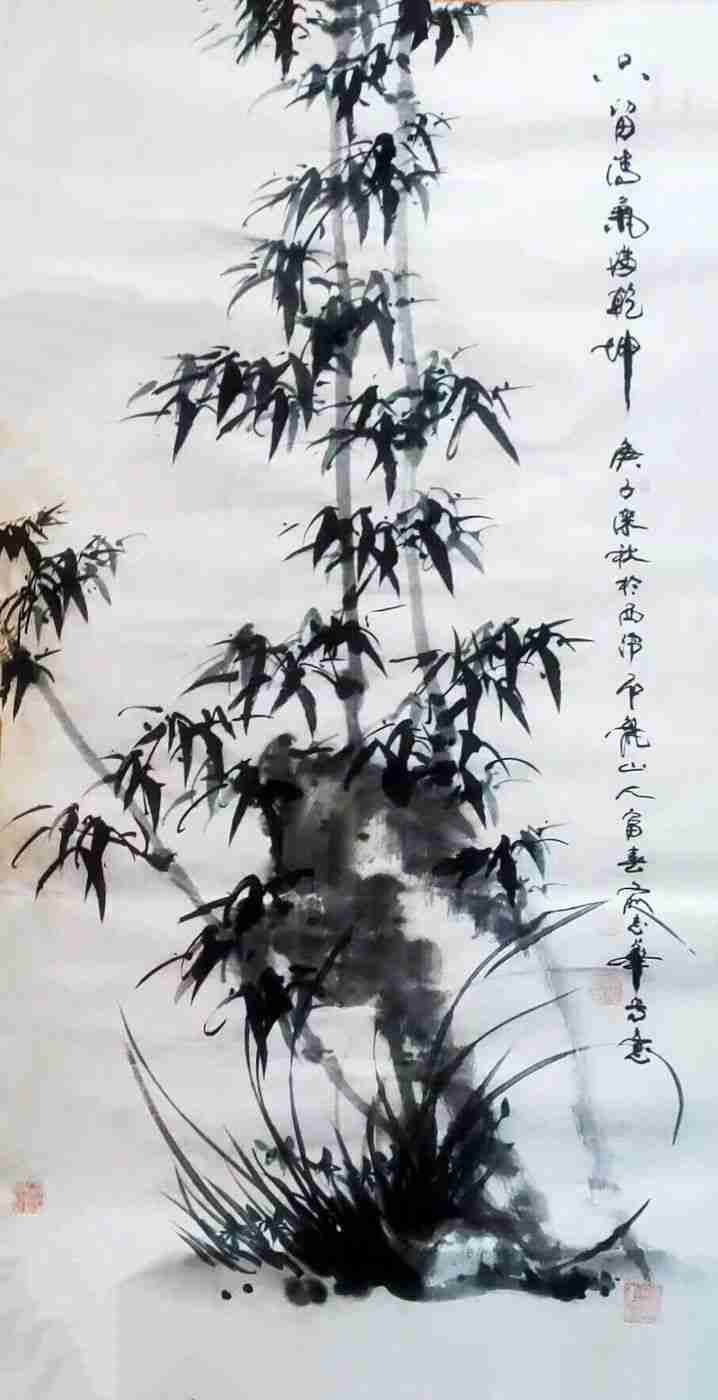 只留清氣滿乾坤
庚子深秋於西 龍山人富春 志華寫意